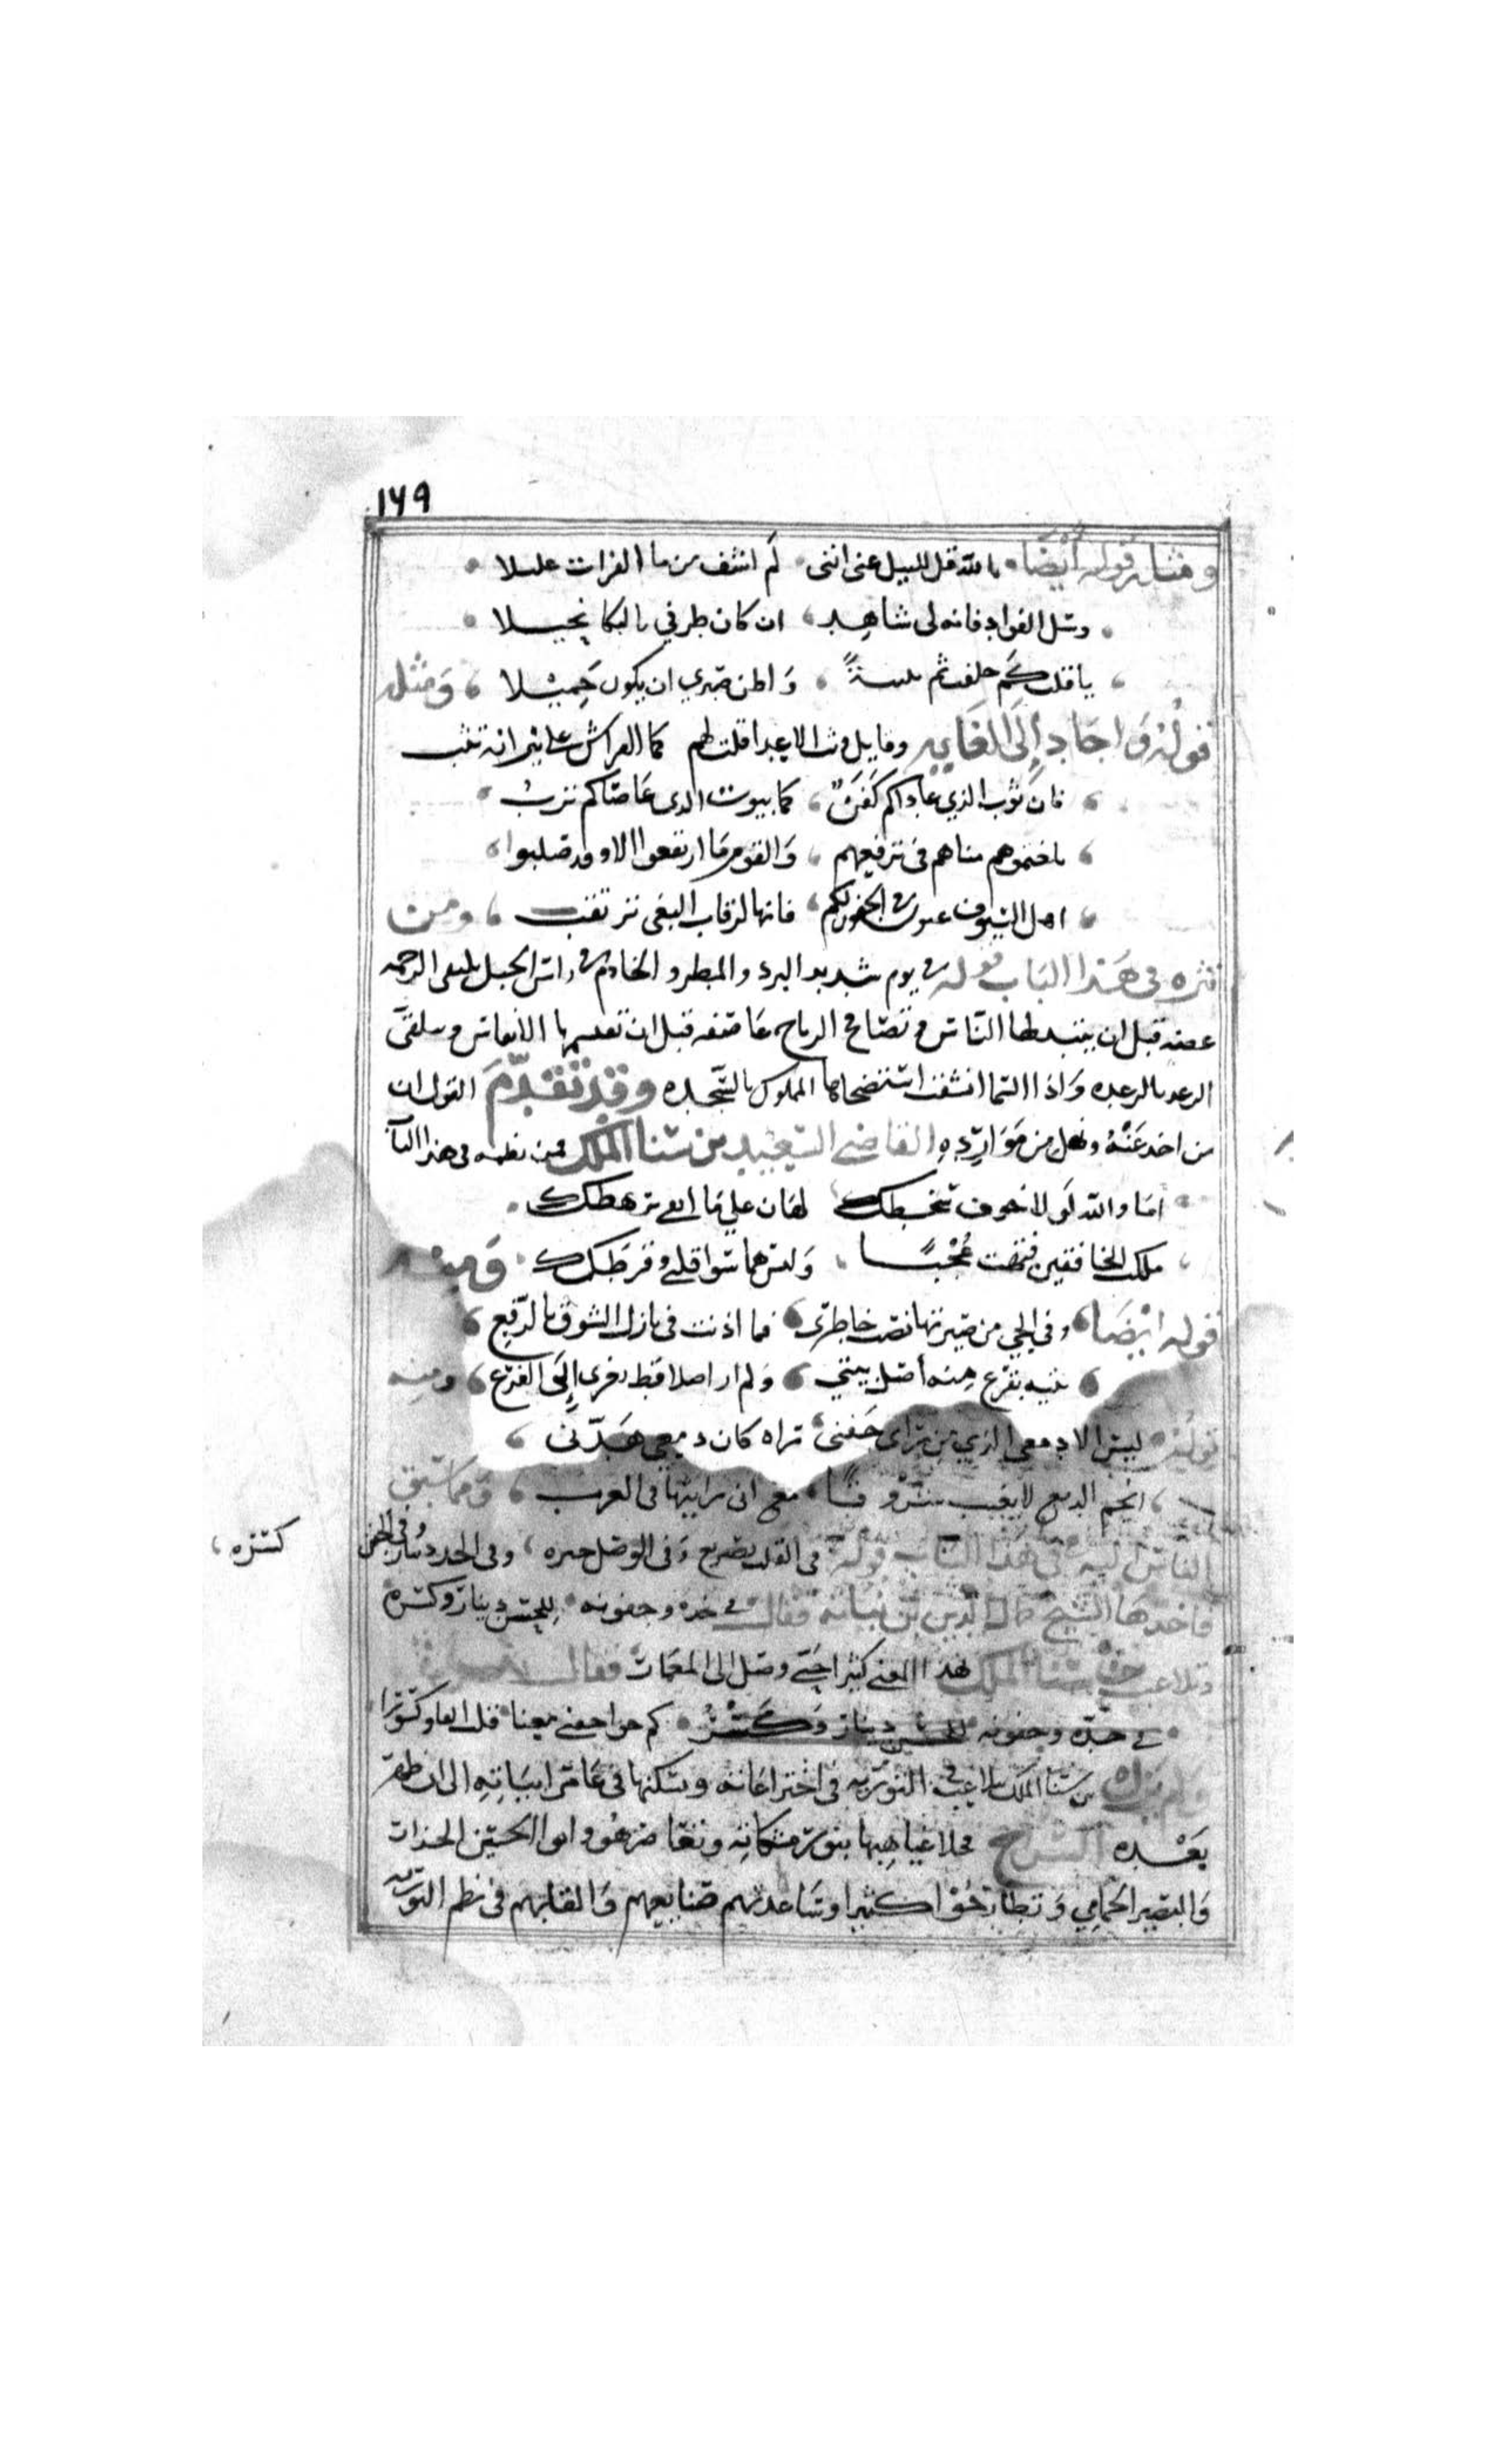 ١٦٩
ومثله قوله أيضا بالله قل للنيل عني انني لم اشف من ما الفرات غليلا
وسل الفواد فانه لي شاهد ان كان طرفي بالبكا بخيلا
يا قلب كم خلفت ثم بثينة واظن صبري ان يكون جميلا ومثله
قوله واجاد الى الغايه وقايل الاعدا قلت لهم كما الفراش على نيرانه تثب
فان ثوب الذي عاداكم كفن كما بيوت الذي عاصاكم ترب
مناهم في ترفيعهم والقوم ما ارتفعوا الا وقد صلبوا
السيوف عيون في الجفون لكم فانها لرقاب البغي ترتقب ومن
نثره في هذا الباب قوله في يوم شديد البرد والمطر والخادم في راس الجبل يلقي الرحمه
غضه قبل ان يتبذلها الناس وتصافح الرياح عاصفه قبل ان تقسمها الانفاس ويتلقى
الرعد بالرعده واذا السما انشقت المملوك بالسجده وقد تقدم القول ان
من اخذ عنه ونهل من موارده القاضي السعيد بن سنا الملك فمن نظمه في هذا الباب
اما والله لولا خوف سخطك لهان علي ما القى برهطك
ملكت الخافقين فتهت عجبا وليس هما سوا قلبي وقرطك ومنه
قوله ايضا وفي الحي من صيرتها نصب خاطري فما اذنت في نازل الشوق بالرفع
بفرع منه اصل بيتي ولم ار اصلا قط الى الفرع ومنه
قوله ليس الا دمعي الذي من راى جفني تراه كان دمعي هدبي
انجم الدمع لا يغيب شروقا مع اني رايتها في الغرب ومما سبق
الناس اليه في هذا الباب قوله في القلب وفي الوصل وفي الخد دينار وفي الجفن
كسره
فاخذها الشيخ جمال الدين بن نباته فقال في خده وجفونه للحسن دينار وكسره
وتلاعب بن سنا الملك بهذا المعنى كثيرا حتى وصل الى المعميات فقال
في خده وجفونه للحسن دينار وكسر كم من معنا قلب الفا وكسورا
ولم يزل بن سنا الملك يتلاعب في التوريه في اختراعاته ويسكنها في عامر ابياته الى ان ظهر
بعده السراج فجلا غياهبها بنور مشكاته وتعاصر هو وابو الحسين الجزار
والنصير الحمامي وتطارحوا كثيرا وساعدتهم صنايعهم والقابهم في نظم التوريه